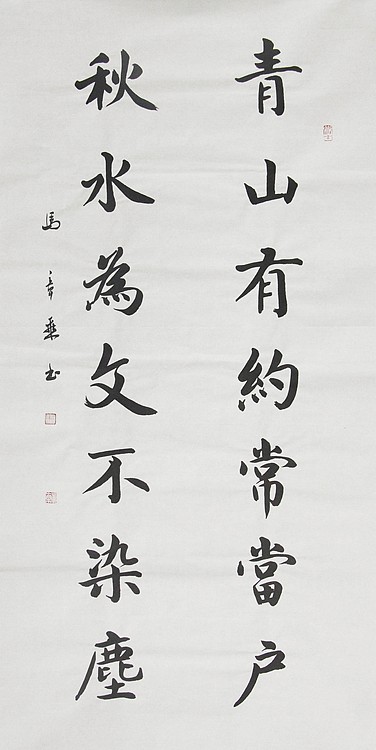 青山有約常當户
秋水為文不染塵
馬章乘书